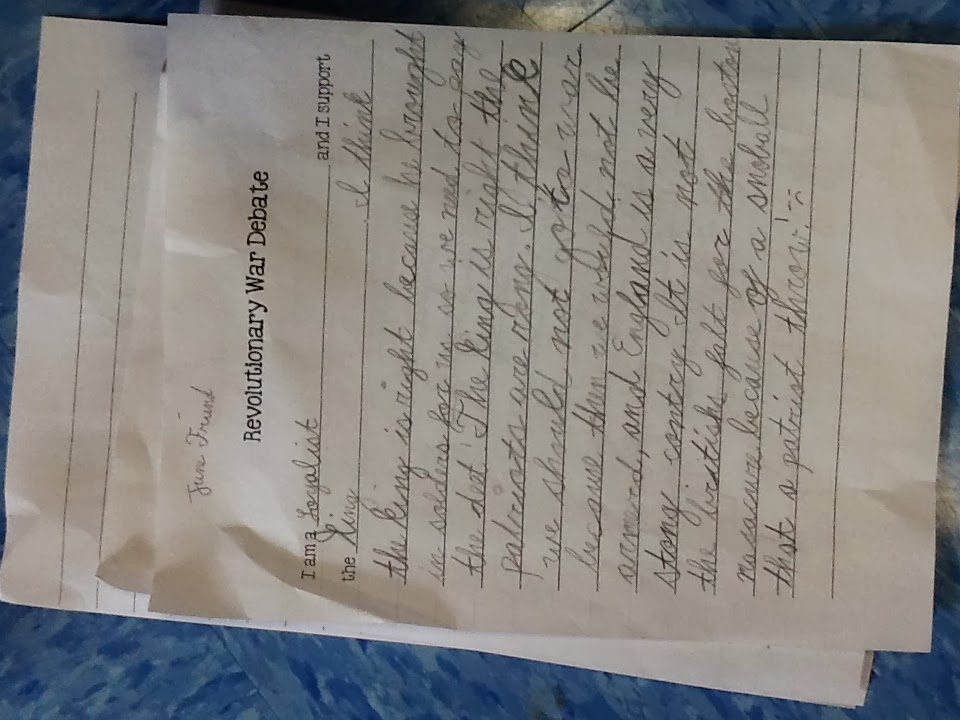 Revolutionary War Debate
I am a Loyalist and I support
the king . I think
the king is right because he brought
in solders for us so we need to pay
the det! The king is right the
patriots are rong. I think
we should not go to war
because then we whould not be
armered, and England is a very
stong contry. It is not
the birtishs falt for the boston
massacure because of a snoball
that a patriot throw! :-